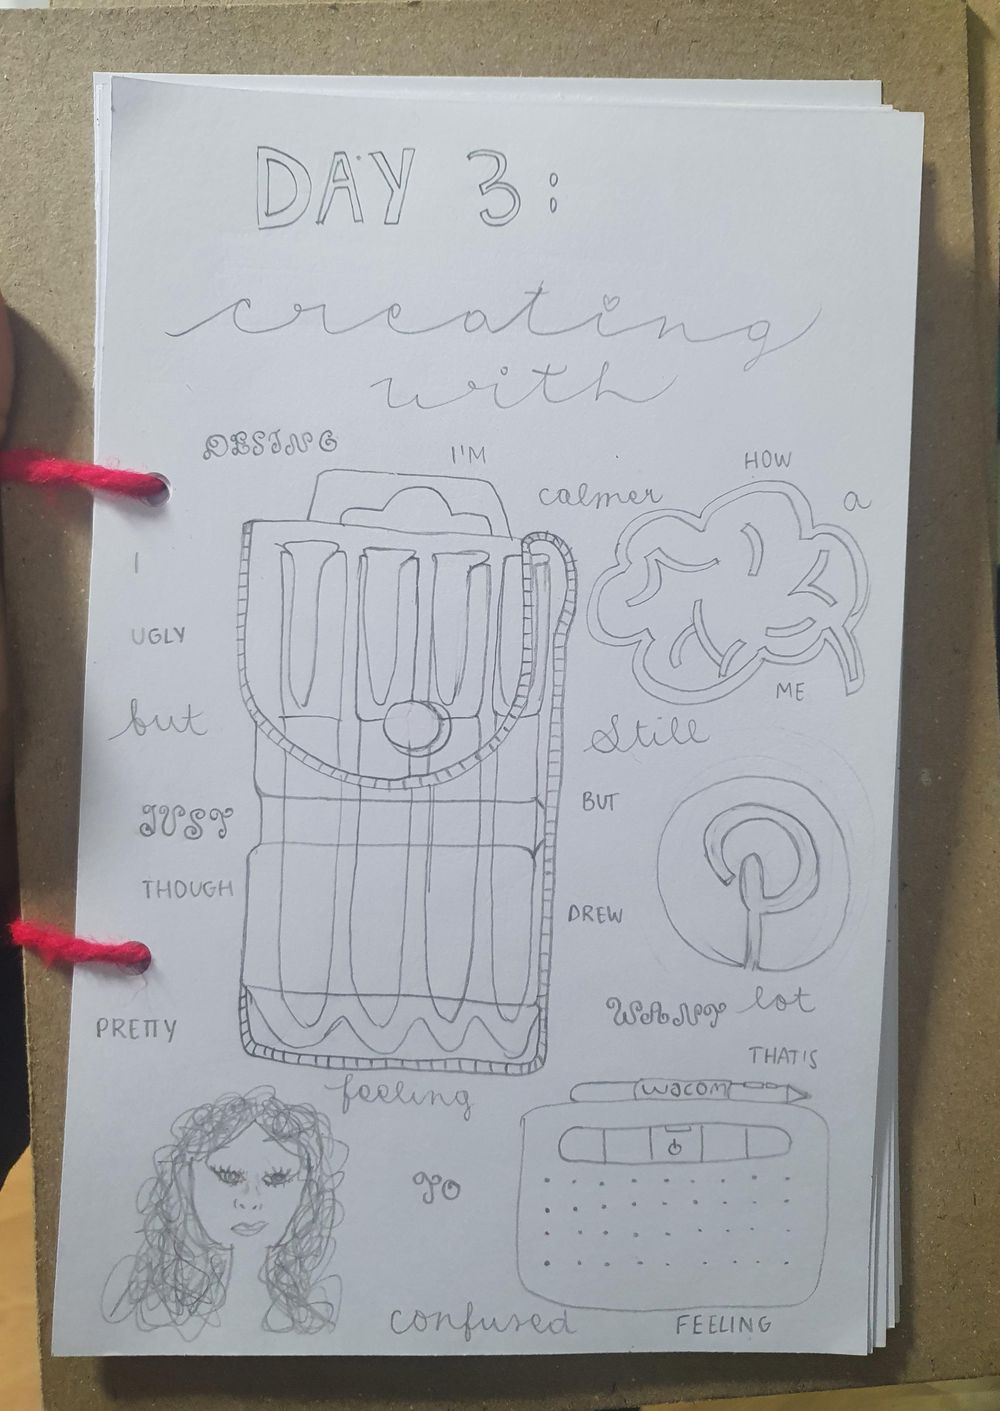 DAY 3:
creating
with
DESING
I'M
HOW
calmer
a
I
UGLY
ME
but
Still
BUT
JUST
THOUGH
DREW
lot
WANT
PRETTY
THAT'S
feeling
wacom
TO
confused
FEELING